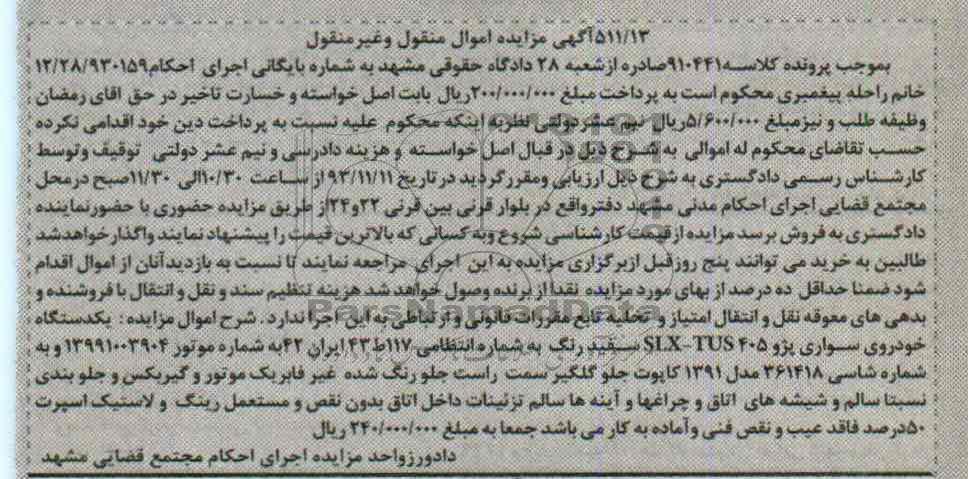 ۵۱۱/۱۳آگهی مزایده اموال منقول وغیرمنقول
بموجب پرونده کلاسه۹۱۰۴۴۱صادره ازشعبه ۲۸ دادگاه حقوقی مشهد به شماره بایگانی اجرای احکام۱۲/۲۸/۹۳۰۱۵۹
خانم راحله پیغمبری محکوم است به پرداخت مبلغ ۲۰۰/۰۰۰/۰۰۰ریال بابت اصل خواسته و خسارت تاخیر در حق اقای رمضان
وظیفه طلب و نیزمبلغ ۵/۶۰۰/۰۰۰ریال نیم عشردولتی نظربه اینکه محکوم علیه نسبت به پرداخت دین خود اقدامی نکرده
حسب تقاضای محکوم له اموالی به شرح ذیل در قبال اصل خواسته و هزینه دادرسی و نیم عشر دولتی توقیف وتوسط
کارشناس رسمی دادگستری به شرح ذیل ارزیابی ومقررگردید در تاریخ ۹۳/۱۱/۱۱ از ساعت ۱۰/۳۰الی ۱۱/۳۰صبح درمحل
مجتمع قضایی اجرای احکام مدنی مشهد دفترواقع در بلوار قرنی بین قرنی ۲۲و۲۴از طریق مزایده حضوری با حضورنماینده
دادگستری به فروش برسد مزایده ازقیمت کارشناسی شروع وبه کسانی که بالاترین قیمت را پیشنهاد نمایند واگذارخواهدشد
طالبین به خرید می توانند پنج روزقبل ازبرگزاری مزایده به این اجرای مراجعه نمایند تا نسبت به بازدیدآنان از اموال اقدام
شود ضمنا حداقل ده درصد از بهای مورد مزایده نقدا از برنده وصول خواهد شد هزینه تنظیم سند و نقل و انتقال با فروشنده و
بدهی های معوقه نقل و انتقال امتیاز و تخلیه تابع مقررات قانونی و ارتباطی به این اجرا ندارد. شرح اموال مزایده : یکدستگاه
خودروی سواری پژو ۴۰۵ SLX-TUS سفید رنگ به شماره انتظامی ۱۱۷ط۴۳ ایران ۴۲به شماره موتور ۱۳۹۹۱۰۰۳۹۰۴ و به
شماره شاسی ۳۶۱۴۱۸ مدل ۱۳۹۱ کاپوت جلو گلگیر سمت راست جلو رنگ شده غیر فابریک موتور و گیربکس و جلو بندی
نسبتا سالم و شیشه های اتاق و چراغها و آینه ها سالم تزئینات داخل اتاق بدون نقص و مستعمل رینگ و لاستیک اسپرت
۵۰درصد فاقد عیب و نقص فنی وآماده به کار می باشد جمعا به مبلغ ۲۴۰/۰۰۰/۰۰۰ ریال
دادورزواحد مزایده اجرای احکام مجتمع قضایی مشهد
ParsNamadData